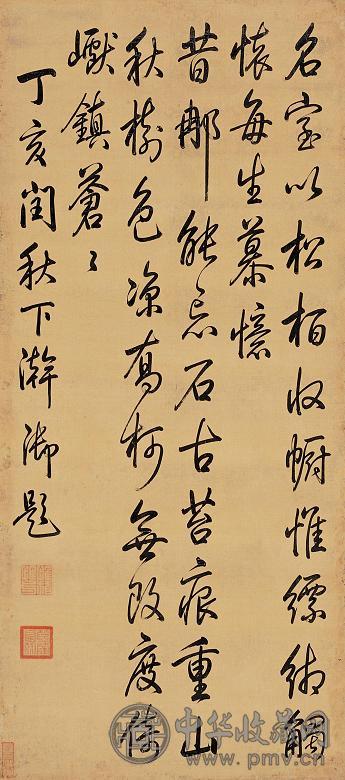 名室以松柏收幮惟縹緗觸
懷每生慕憶
昔那能忘石古苔痕重山
秋樹色涼柯無改度
巘鎮蒼〻
丁亥閏秋下澣御題
中华收藏网
www.pmv.cn